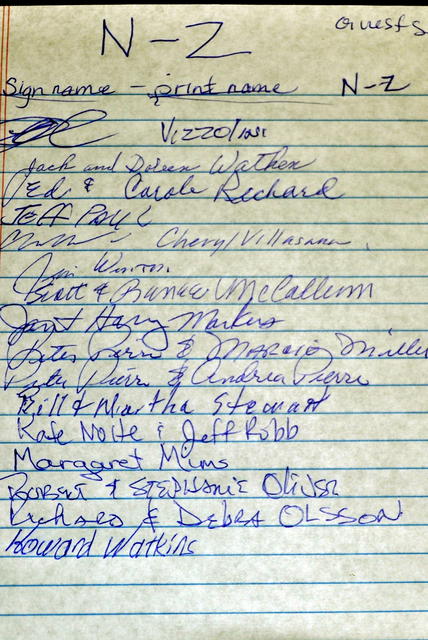 Guests
N-Z
Sign name - print name N-Z
Vizzolini
Jack and Doreen Wathen
Ed & Carole Richard
Jeff Paul
Cheryl Villasana
Jim Winton
Scott & McCallum
Janet Harry Markus
Peter Pierri & Marcie Miller
Peter Pierri & Andrea Pierri
Bill & Martha Stewart
Kate Nolte & Jeff Robb
Margaret Mims
Robert & Stephanie Oliver
Richard & Debra Olsson
Howard Watkins